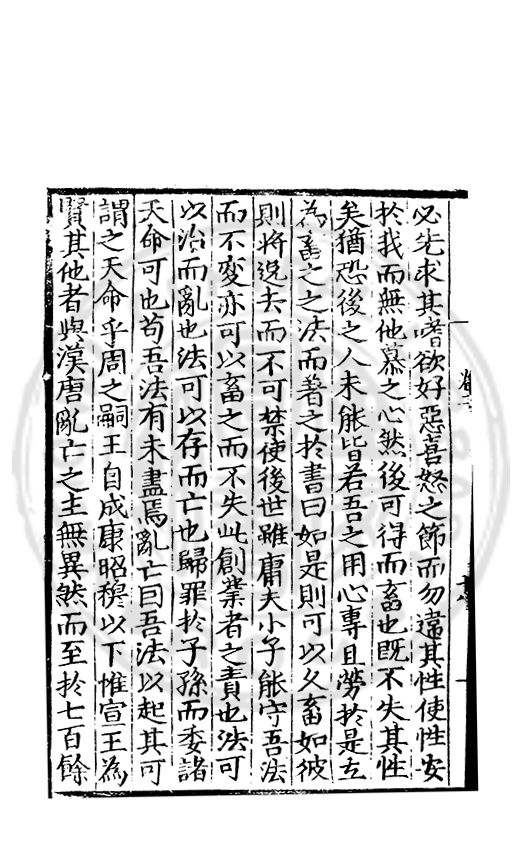 必先求其嗜欲好惡喜怒之節而勿違其性使性安
於我而無他慕之心然後可得而畜也既不失其性
矣猶恐後之人未能皆若吾之用心專且勞於是立
為畜之之法而著之於書曰如是則可以久畜如彼
則將逸去而不可禁使後世雖庸夫小子能守吾法
而不變亦可以畜之而不失此創業者之責也法可
以治而亂也法可以存而亡也歸罪於子孫而委諸
天命可也苟吾法有未盡焉亂亡因吾法以起其可
謂之天命乎周之嗣王自成康昭穆以下惟宣王為
賢其他者與漢唐亂亡之主無異然而至於七百餘